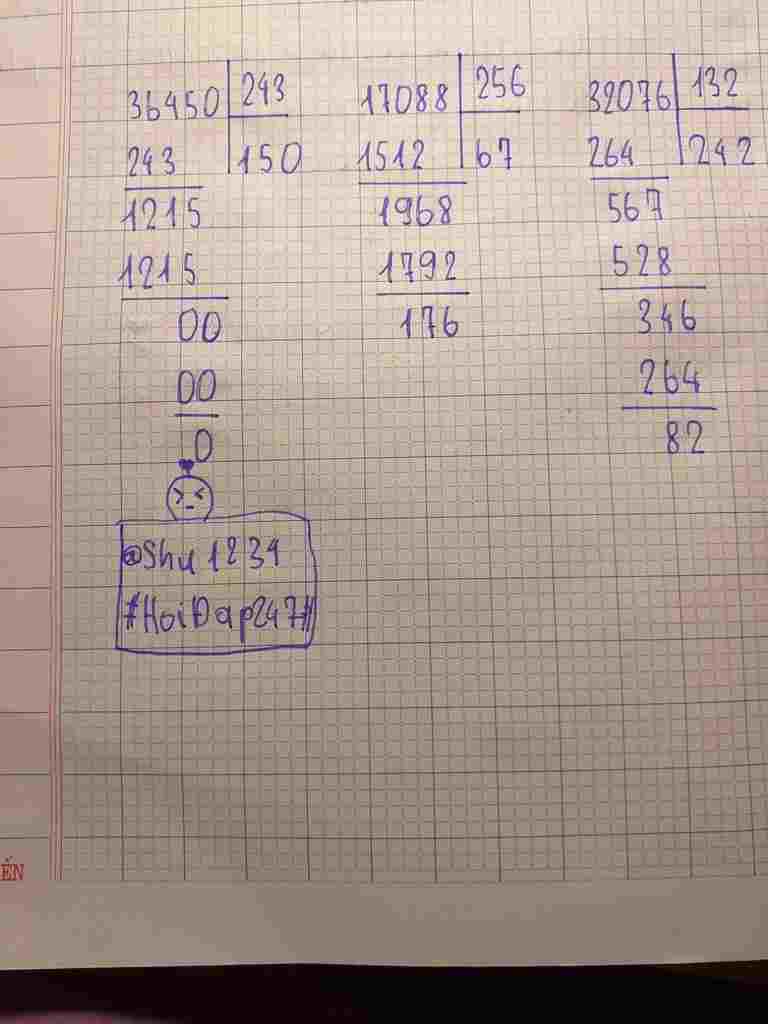 36450 243
243 150
1215
1215
00
00
0
17088 256
1512 67
1968
1792
176
32076 132
264 242
567
528
346
264
82
@Shu1234
#HoiĐap247#
ẾN